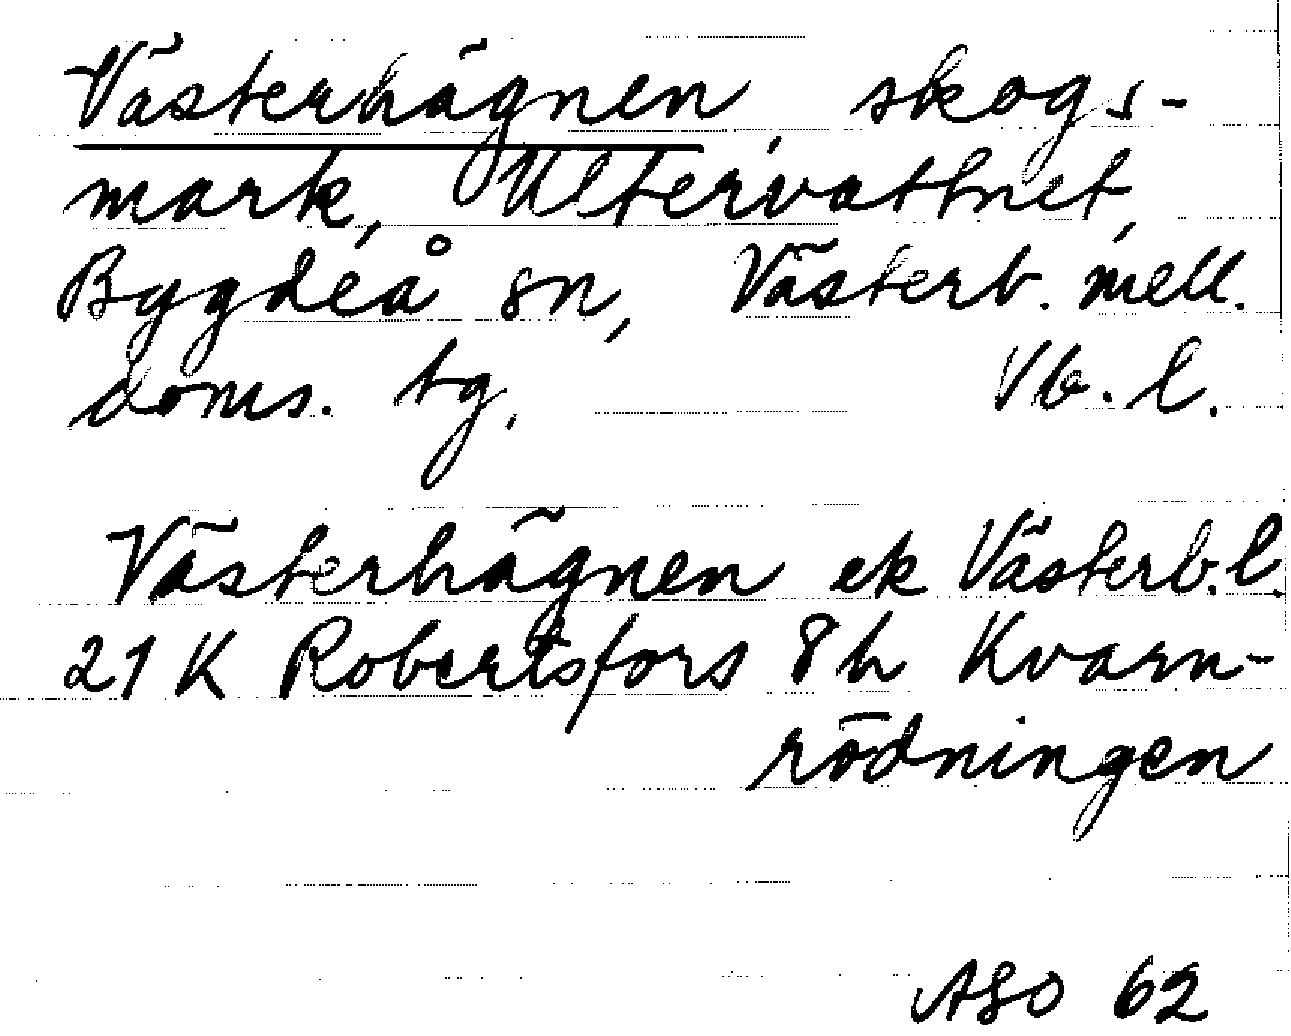 Västerhägnen, skogs-
mark, Ultervattnet,
Bygdeå sn, Västerb. mell.
doms. tg, Vb. l.
Västerhägnen ek Västerb. l.
21 K Robertsfors 8 h Kvarn-
rödningen
ASO 62